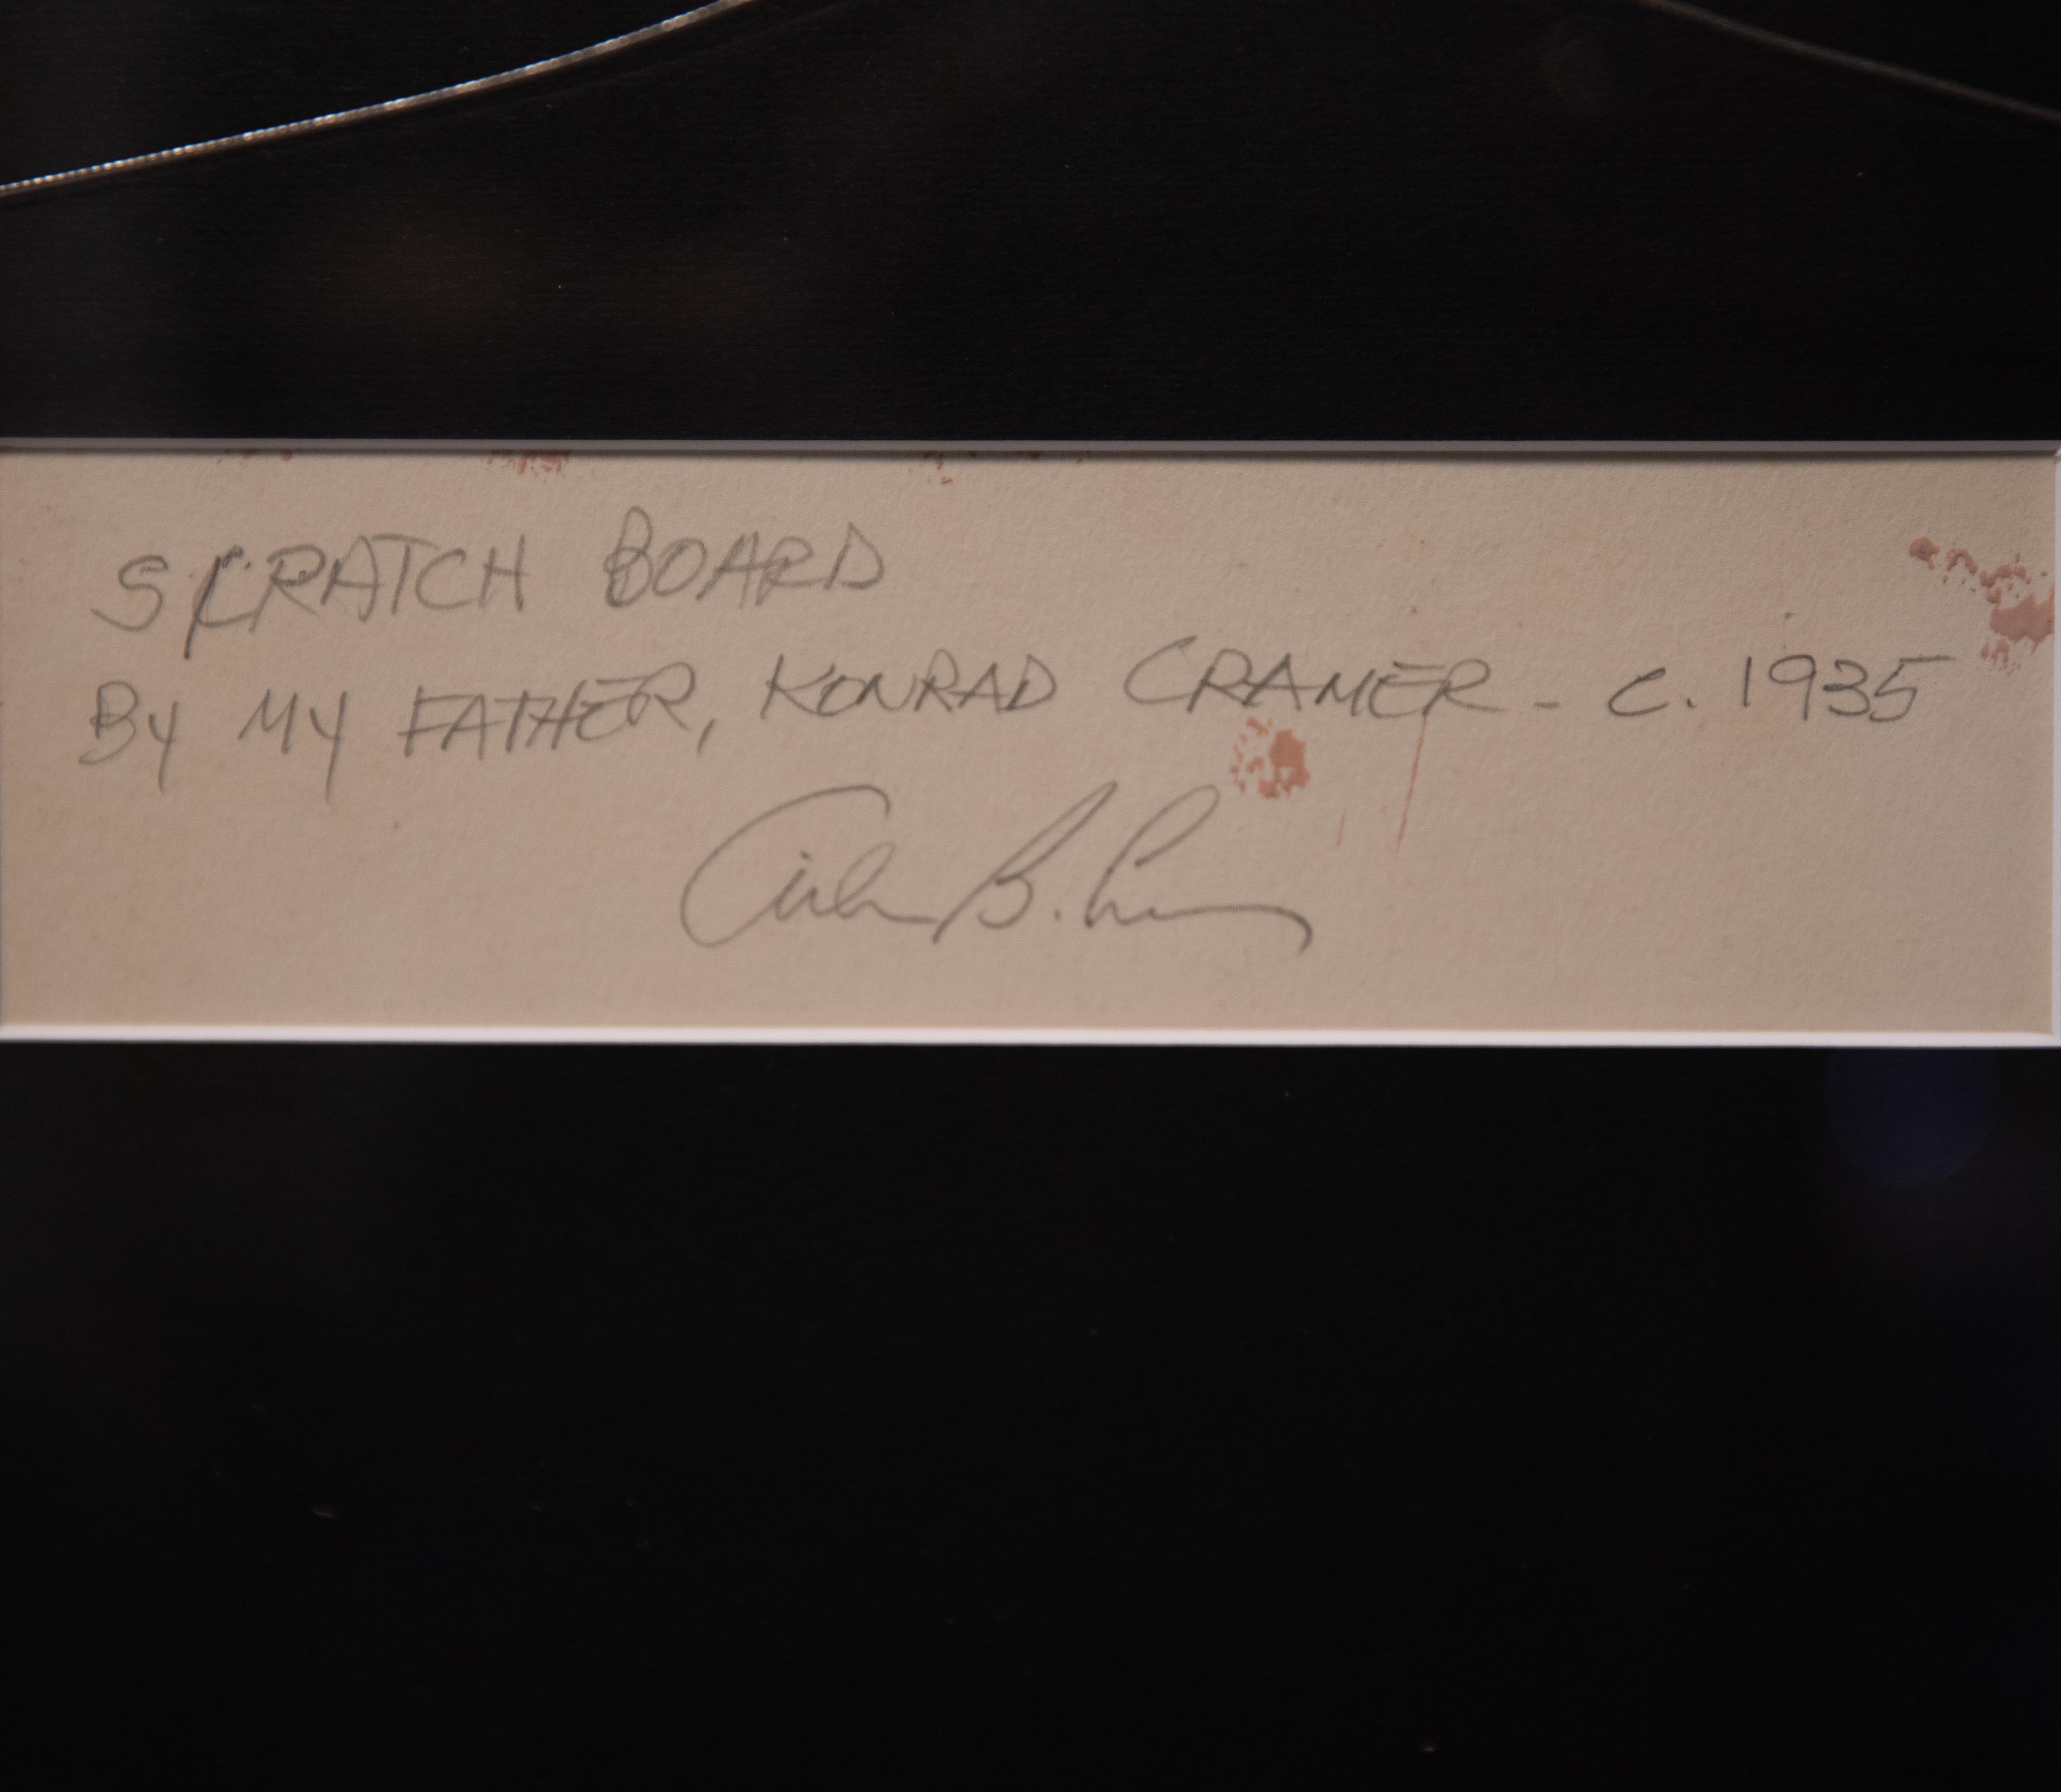 SCRATCH BOARD
BY MY FATHER, KONRAD CRAMER - C. 1935
B.